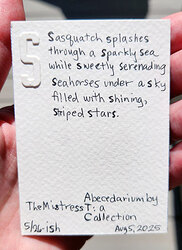 S
Sasquatch splashes
through a sparkly sea
while sweetly serenading
seahorses under a sky
filled with shining,
striped stars.
Abecedarium by
TheMistress T: a
Collection
5/26-ish
Aug 5, 2025